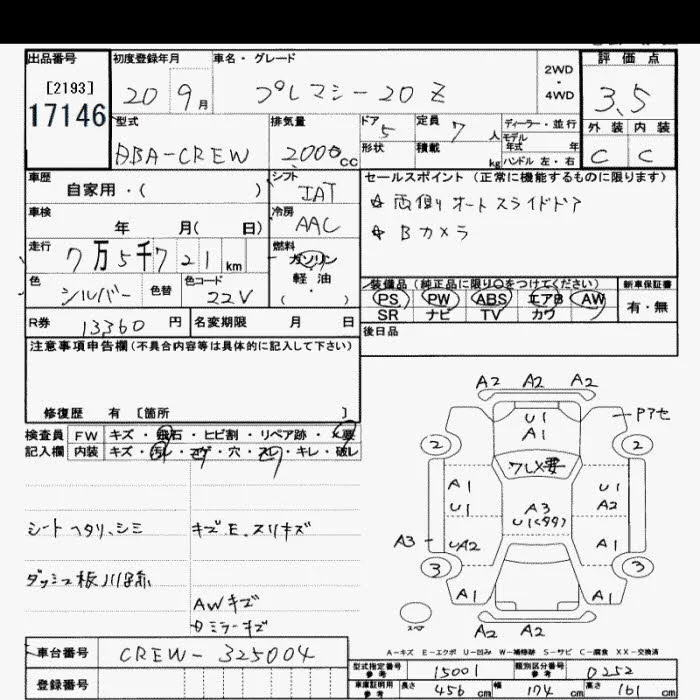 出品番号 初度登録年月 車名・グレード 評価点
[2193] 20 9月 プレマシー20Z 2WD・4WD 3.5
17146 型式 排気量 ドア 定員 ディーラー・並行 外装 内装
DBA-CREW 2000cc 5 7人 モデル年式 年 C C
形状 積載 kg ハンドル 左・右
車歴 シフト セールスポイント (正常に機能するものに限ります)
自家用・( ) IAT ☆両側オートスライドドア
車検 冷房 ☆Bカメラ
年 月( 日) AAC
走行 燃料
7万5千721km ガソリン
色 色替 色コード 軽油 装備品(純正品に限り○をつけてください) 新車保証書
シルバー 22V ( ・ ) PS PW ABS エアB AW 有・無
SR ナビ TV カワ
R券 13360円 名変期限 月 日 後日品
注意事項申告欄(不具合内容等は具体的に記入して下さい)
修復歴 有 [箇所 ]
検査員 FW キズ・飛石・ヒビ割・リペア跡・×要
記入欄 内装 キズ・汚レ・コゲ・穴・スレ・キレ・破レ
シートヘタリ、シミ キズE、スリキズ
ダッシュ板ハリ跡
AWキズ
ミラーキズ
A2 A2 A2
U1 Pアセ
A1
2 2
フレX要
A1 U1
U1 A3 A2
U1(99)
A3 UA2 A1
3 3
A1 A1
スペア A2 A2
A-キズ E-エクボ U-凹み W-補修跡 S-サビ C-腐食 XX-交換済
車台番号 CREW-325004
型式指定番号 参考 15001 類別区分番号 参考 0252
登録番号 車庫証明用 参考 長さ 456cm 幅 174cm 高さ 161cm